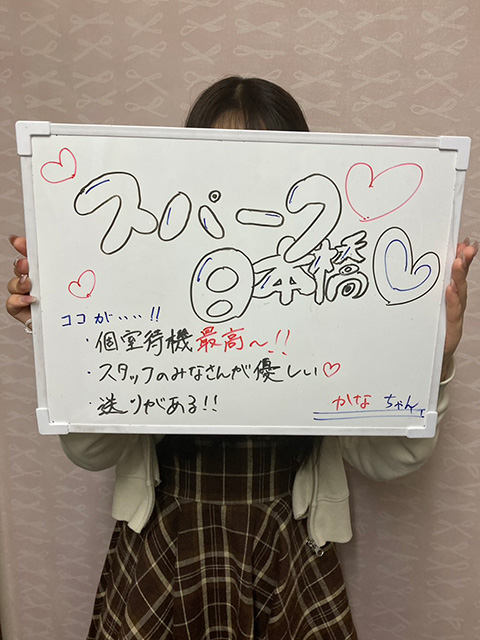 スパーク
日本橋
ココがいい!!
・個室待機最高～!!
・スタッフのみなさんが優しい♡
・送りがある!!
かなちゃん